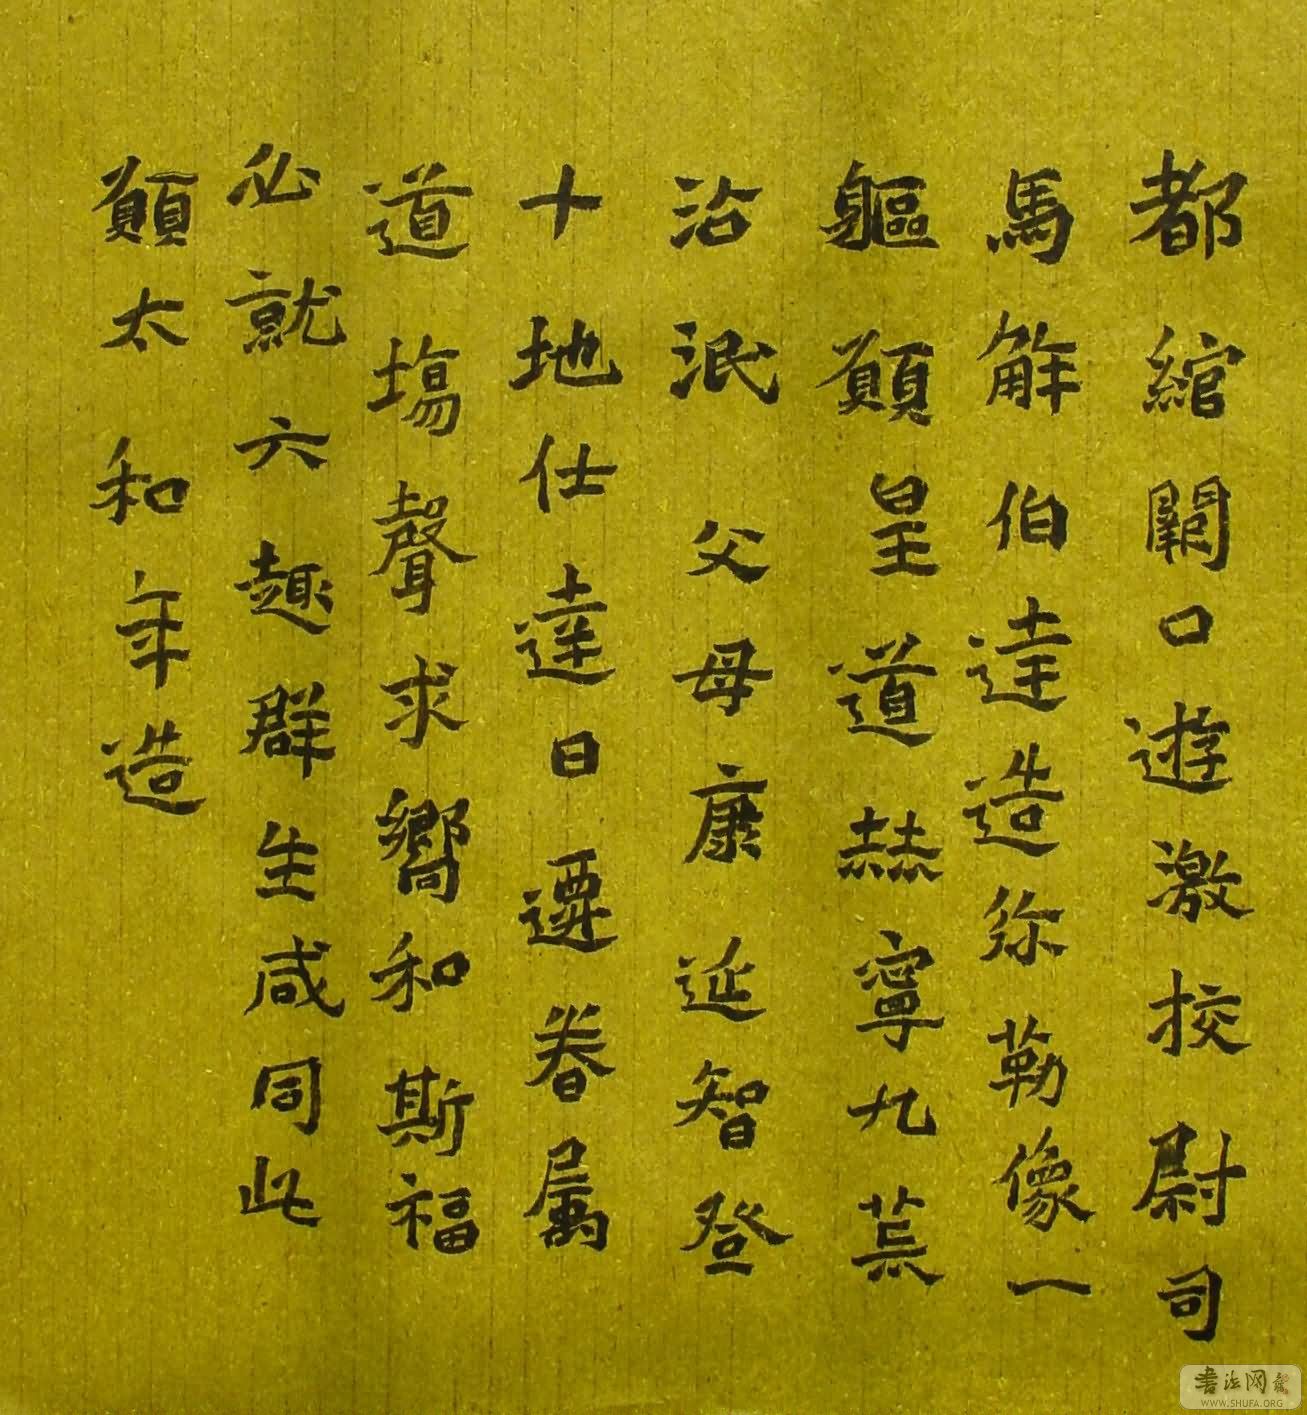 都綰闕口遊激挍尉司
馬解伯達造弥勒像一
軀願皇道赫寧九荒
沾泯父母康延智登
十地仕達日遷眷属
道塲聲求嚮和斯福
必就六趣群生咸同此
願太和年造
書法网
WWW.SHUFA.ORG